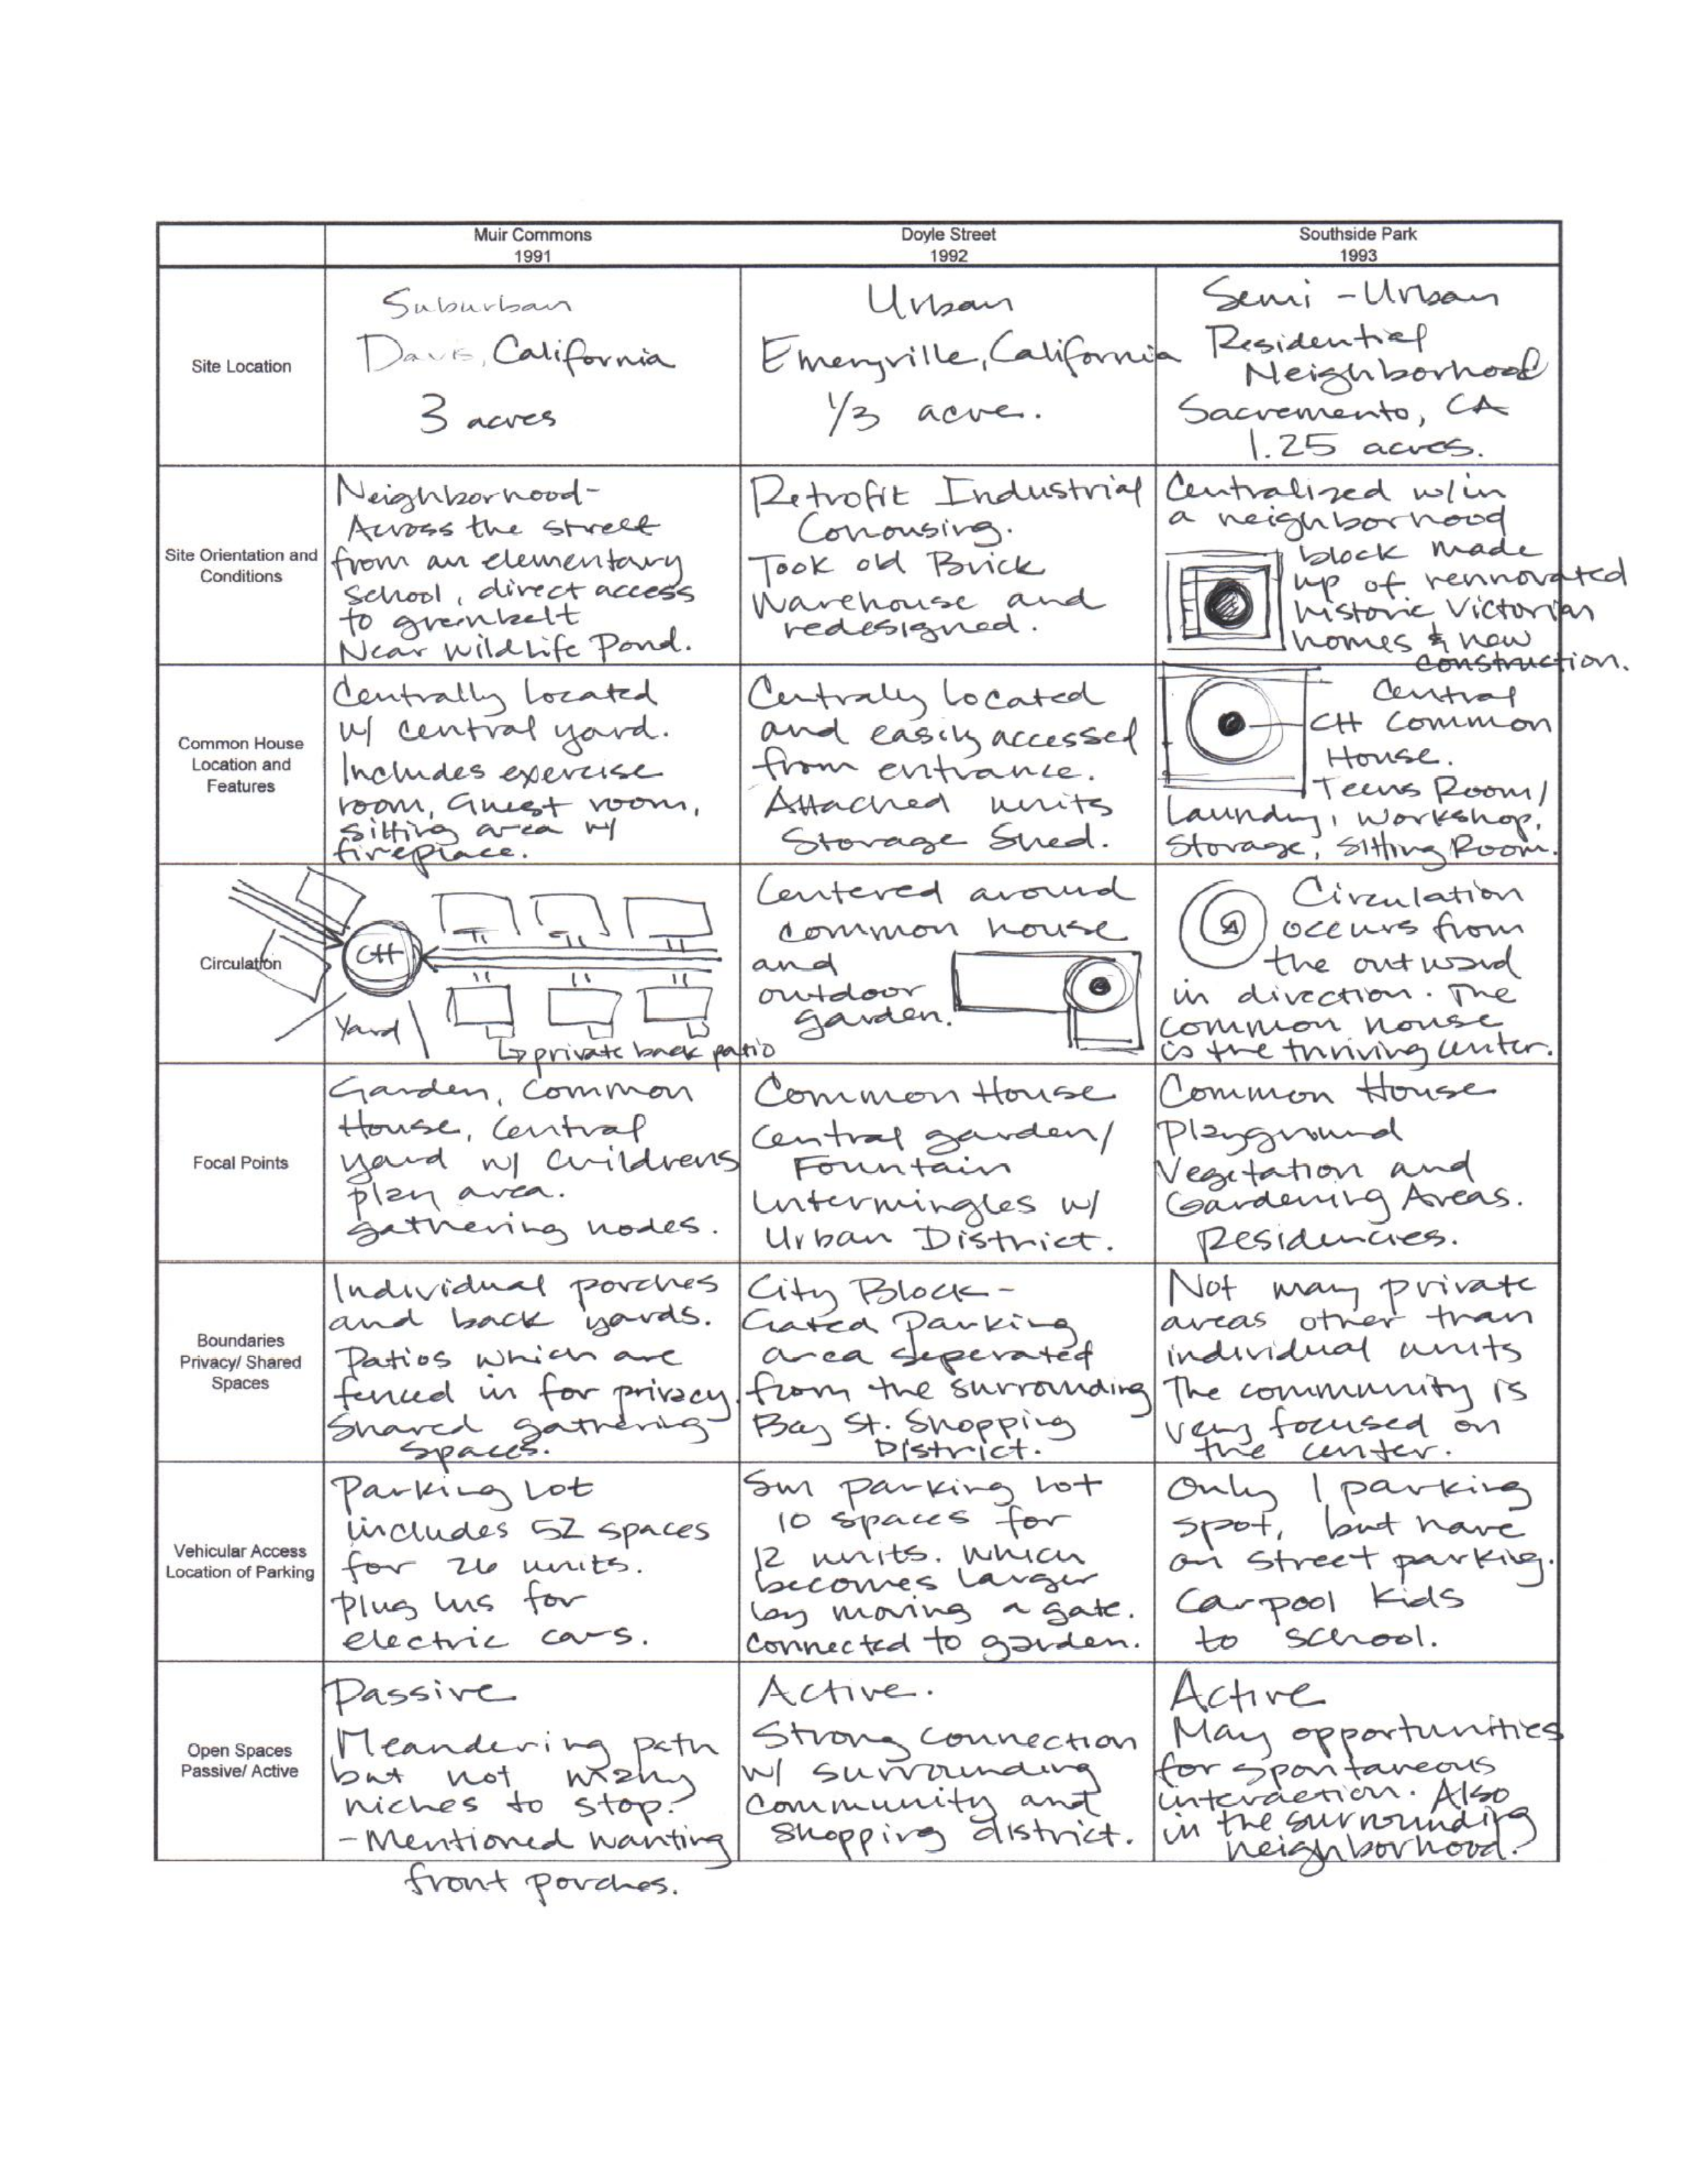 Muir Commons
1991
Doyle Street
1992
Southside Park
1993
Site Location
Suburban
Davis, California
3 acres
Urban
Emeryville, California
1/3 acre.
Semi-Urban
Residential
Neighborhood
Sacremento, CA
1.25 acres.
Site Orientation and
Conditions
Neighborhood-
Across the street
from an elementary
school, direct access
to greenbelt
Near Wildlife Pond.
Retrofit Industrial
Cohousing.
Took old Brick
Warehouse and
redesigned.
Centralized w/in
a neighborhood
block made
up of rennovated
historic Victorian
homes & new
construction.
Common House
Location and
Features
Centrally located
w/ central yard.
Includes exercise
room, Guest room,
sitting area w/
fireplace.
Centraly located
and easily accessed
from entrance.
Attached units
Storage Shed.
Central
CH Common
House.
Teens Room/
Laundry, Workshop,
Storage, Sitting Room.
Circulation
CH
Yard
private back patio
Centered around
common house
and
outdoor
garden.
Circulation
occurs from
the outward
in direction. The
common house
is the thriving center.
Focal Points
Garden, Common
House, Central
yard w/ childrens
play area.
gathering nodes.
Common House
Central garden/
Fountain
Intermingles w/
Urban District.
Common House
Playground
Vegetation and
Gardening Areas.
Residencies.
Boundaries
Privacy/ Shared
Spaces
Individual porches
and back yards.
Patios which are
fenced in for privacy.
Shared gathering
spaces.
City Block-
Gated Parking
area seperated
from the surrounding
Bay St. Shopping
District.
Not many private
areas other than
individual units
The community is
very focused on
the center.
Vehicular Access
Location of Parking
Parking Lot
includes 52 spaces
for 26 units.
Plug ins for
electric cars.
Sm parking lot
10 spaces for
12 units. which
becomes larger
by moving a gate.
Connected to garden.
Only 1 parking
spot, but have
on street parking.
Carpool Kids
to school.
Open Spaces
Passive/ Active
Passive
Meandering path
but not many
niches to stop.
-Mentioned wanting
front porches.
Active.
Strong connection
w/ surrounding
community and
shopping district.
Active
May opportunities
for spontaneous
interaction. Also
in the surrounding
neighborhood.